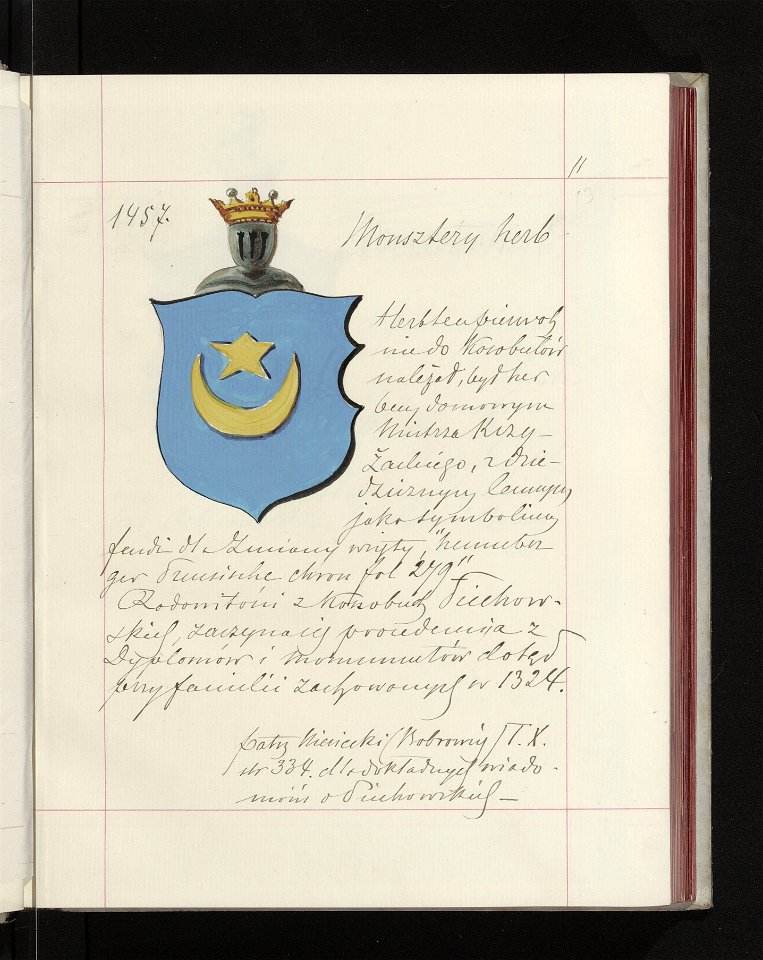 11
13
1457.
Monsztery herb
Herb ten pierwot
nie do Kosobutów
należad, był her
bem domowym
Mistrza Krzy-
żackiego, z dzie-
dzicznym
jako symbolum
feudi dla Zmiany wzięty, "henneber
ger Preusische chron fol 279"
Rodowitości z Kossobud Piechow-
skich zaczyna się z
Dyplomów i monumentów dotąd
przy familii zachowanych w 1324.
patrz Niesiecki (Bobrowicz) T. X.
str 334. dla dokładnych wiado-
mości o Piechowskich —